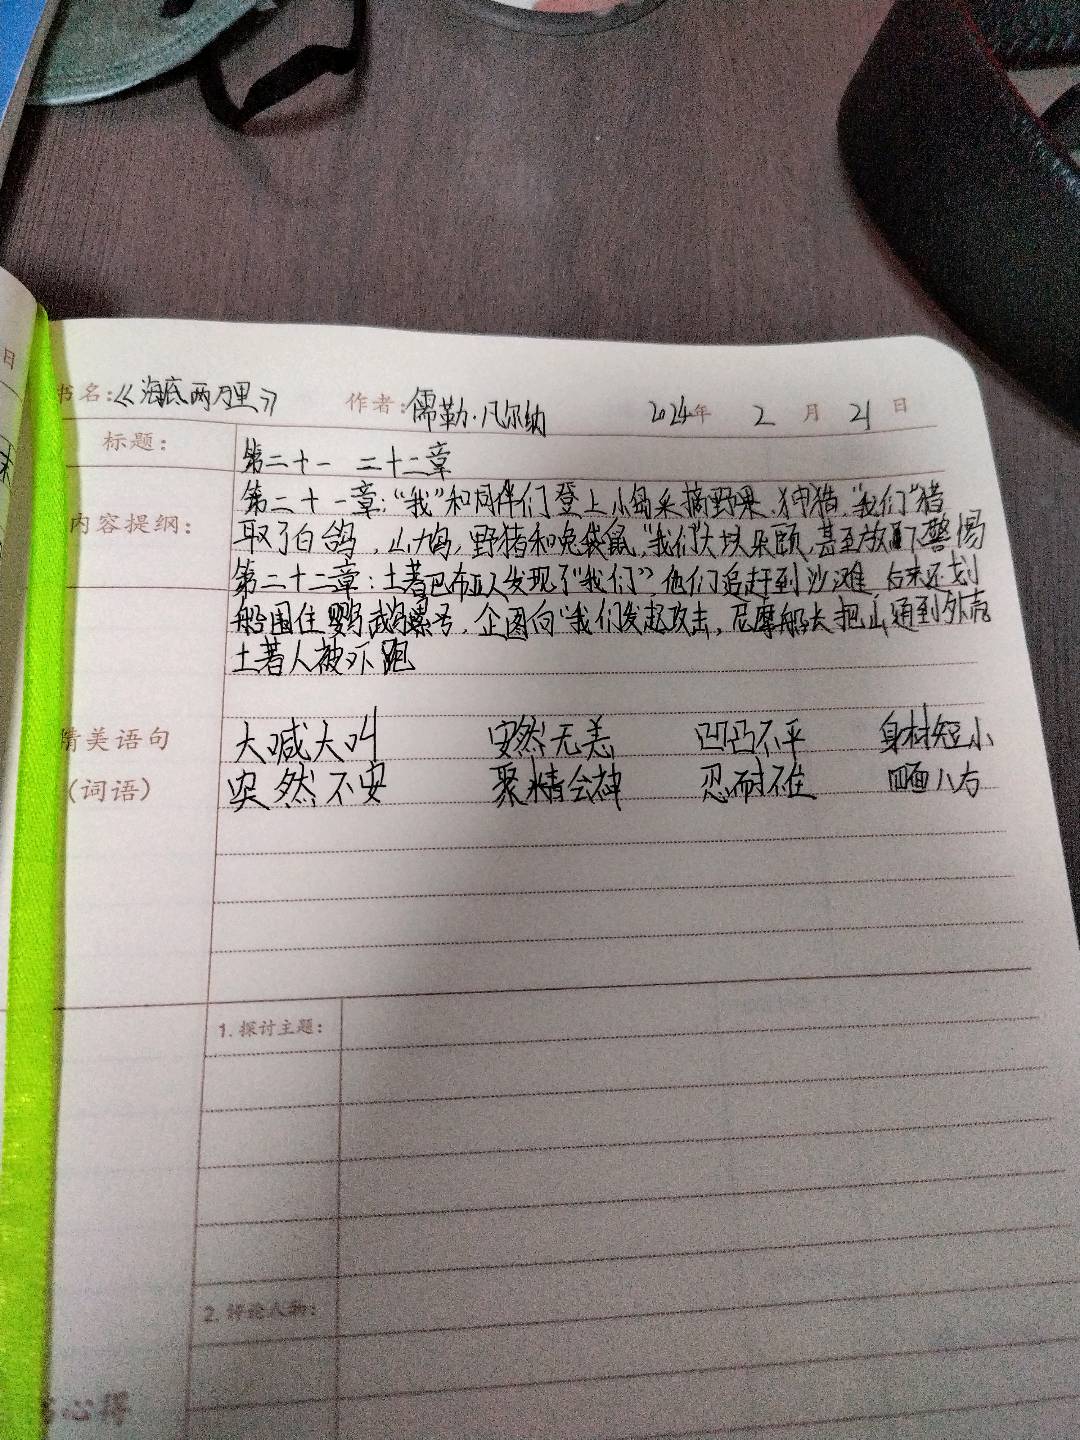 日
书名:《海底两万里》 作者:儒勒·凡尔纳 2024年 2 月 21 日
标题: 第二十一 二十二章
内容提纲: 第二十一章:“我”和同伴们登上小岛采摘野果、狩猎,“我们”猎
取了白鸽,山鸠,野猪和兔袋鼠,“我们”大块朵颐,甚至放下警惕
第二十二章:土著巴布亚人发现了“我们”,他们追赶到沙滩,后来还划
船围住鹦鹉螺号,企图向“我们发起攻击,尼摩船长把 通到外
土著人被吓跑
精美语句 大喊大叫 安然无恙 凹凸不平 身材短小
(词语) 突然不安 聚精会神 忍耐不住 四面八方
1.探讨主题:
2.评论人物:
心得